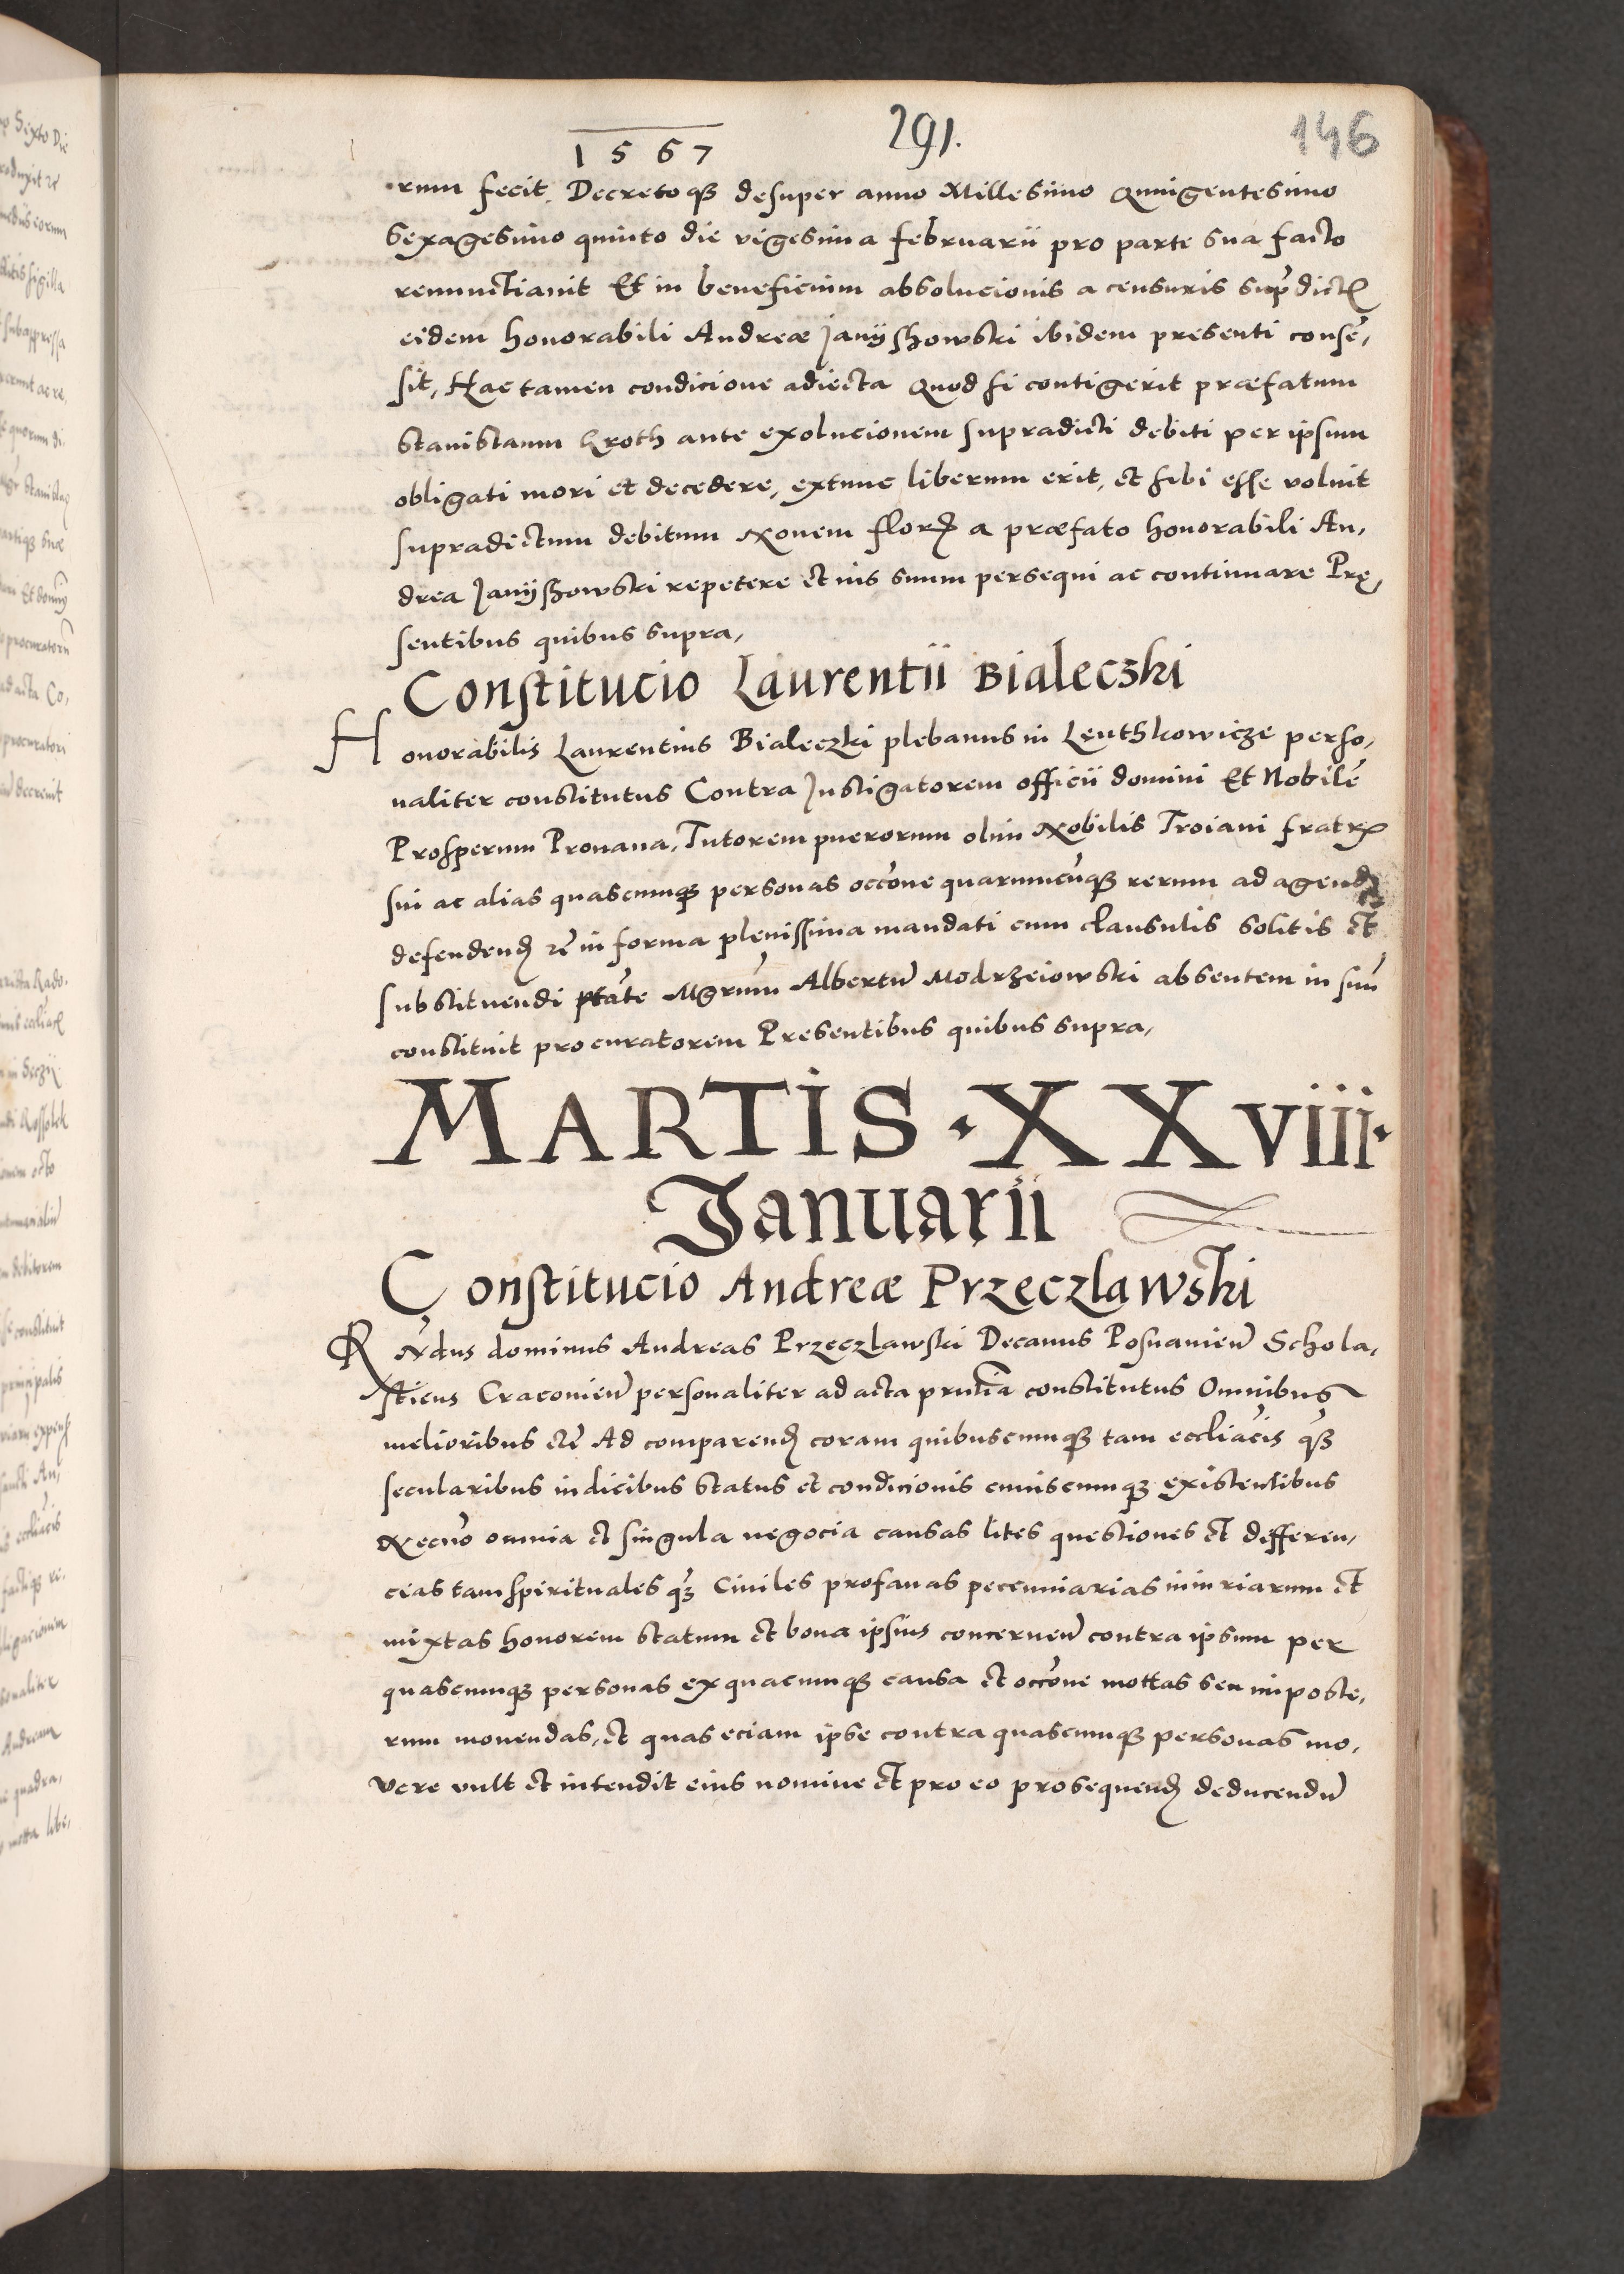 1567 291. 146
rum fecit, Decretoq3 desuper anno Millesimo Quingentesimo
Sexagesimo quinto die vigesima februarii pro parte sua facto
renunctiavit Et in beneficium absolucionis a censuris sup̄dict
eidem honorabili Andreæ Janijszhowski ibidem presenti consē,
sit, Hac tamen condicione adiecta Quod si contigerit præfatum
Stanislaum Kroth ante exolucionem supradicti debiti per ipsum
obligati mori et decedere, extunc liberum erit, et sibi esse voluit
supradictum debitum Novem flor a præfato honorabili An,
drea Janijszowski repetere et ius suum persequi ac continuare Prę,
sentibus quibus supra,
Constitucio Laurentii Bialeczki
Honorabilis Laurentius Bialeczki plebanus in Leuthkowicze perso,
naliter constitutus Contra Instigatorem officii domini Et Nobilē
Prosperum Provana, Tutorem puerorum olim Nobilis Troiani fratr
sui ac alias quascumq3 personas occōne quarumcūq3 rerum ad agend
defendend rē in forma plenissima mandati cum clausulis solitis et
substituendi ptāte Mgrum Albertū Modrzeiowski absentem in suū
constituit procuratorem Presentibus quibus supra,
MARTIS · XXviii·
Januarii
Constitucio Andreæ Przeczlawski
Rndus dominus Andreas Przeczlawski Decanus Posnanien Schola,
sticus Cracovien personaliter ad acta pr̄ntia constitutus Omnibus
melioribus etē Ad comparend coram quibuscumq3 tam eccliacis q3
secularibus iudicibus status et condicionis cuiuscumq3 existentibus
Necnō omnia et singula negocia causas lites questiones et differen,
ceas tam spirituales q3 Civiles profanas pecuniarias iniuriarum et
mixtas honorem statum et bona ipsius concernen contra ipsum per
quascumq3 personas ex quacumq3 causa et occōne mottas seu imposte,
rum movendas, et quas eciam ipse contra quascumq3 personas mo,
vere vult et intendit eius nomine et pro eo prosequend deducendū